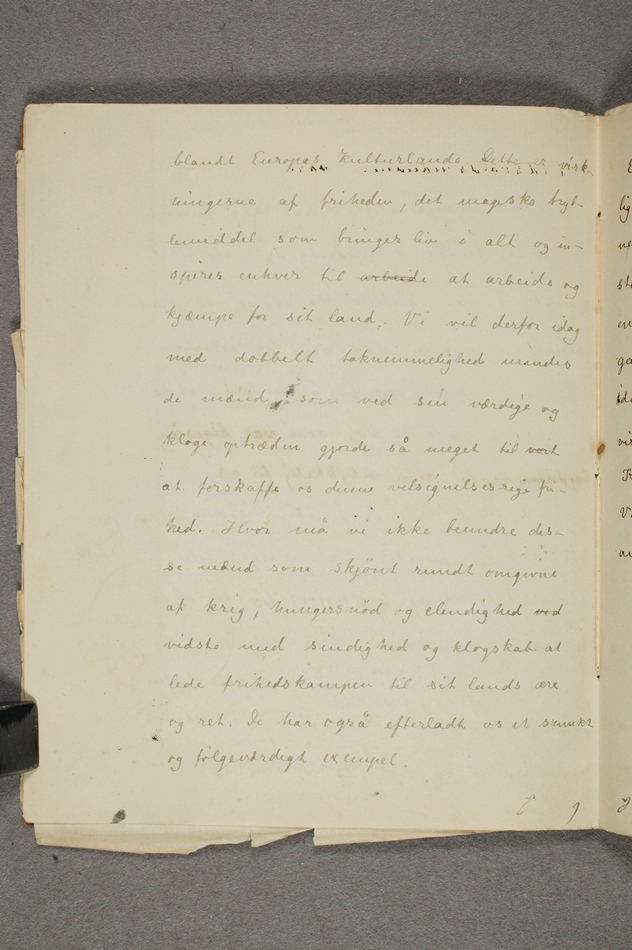 blandt Europas Kulturlande. Dette er virk-
ningerne af friheden, det magiske tryl-
lemiddel som bringer liv i alt og in-
spirer enhver til arbeide at arbeide og
kjæmpe for sit land. Vi vil derfor idag
med dobbelt taknemmelighed mindes
de mænd, som ved sin værdige og
kloge optræden gjorde så meget til vort
at forskaffe os denne velsignelsesrige fri-
hed. Hvor må vi ikke beundre dis-
se mænd som skjönt rundt omgivne
af krig, hungersnöd og elendighed ved
vidste med sindighed og klogskab at
lede frihedskampen til sit lands ære
og ret. De har også efterladt os et smukt
og fölgeværdigt exempel.